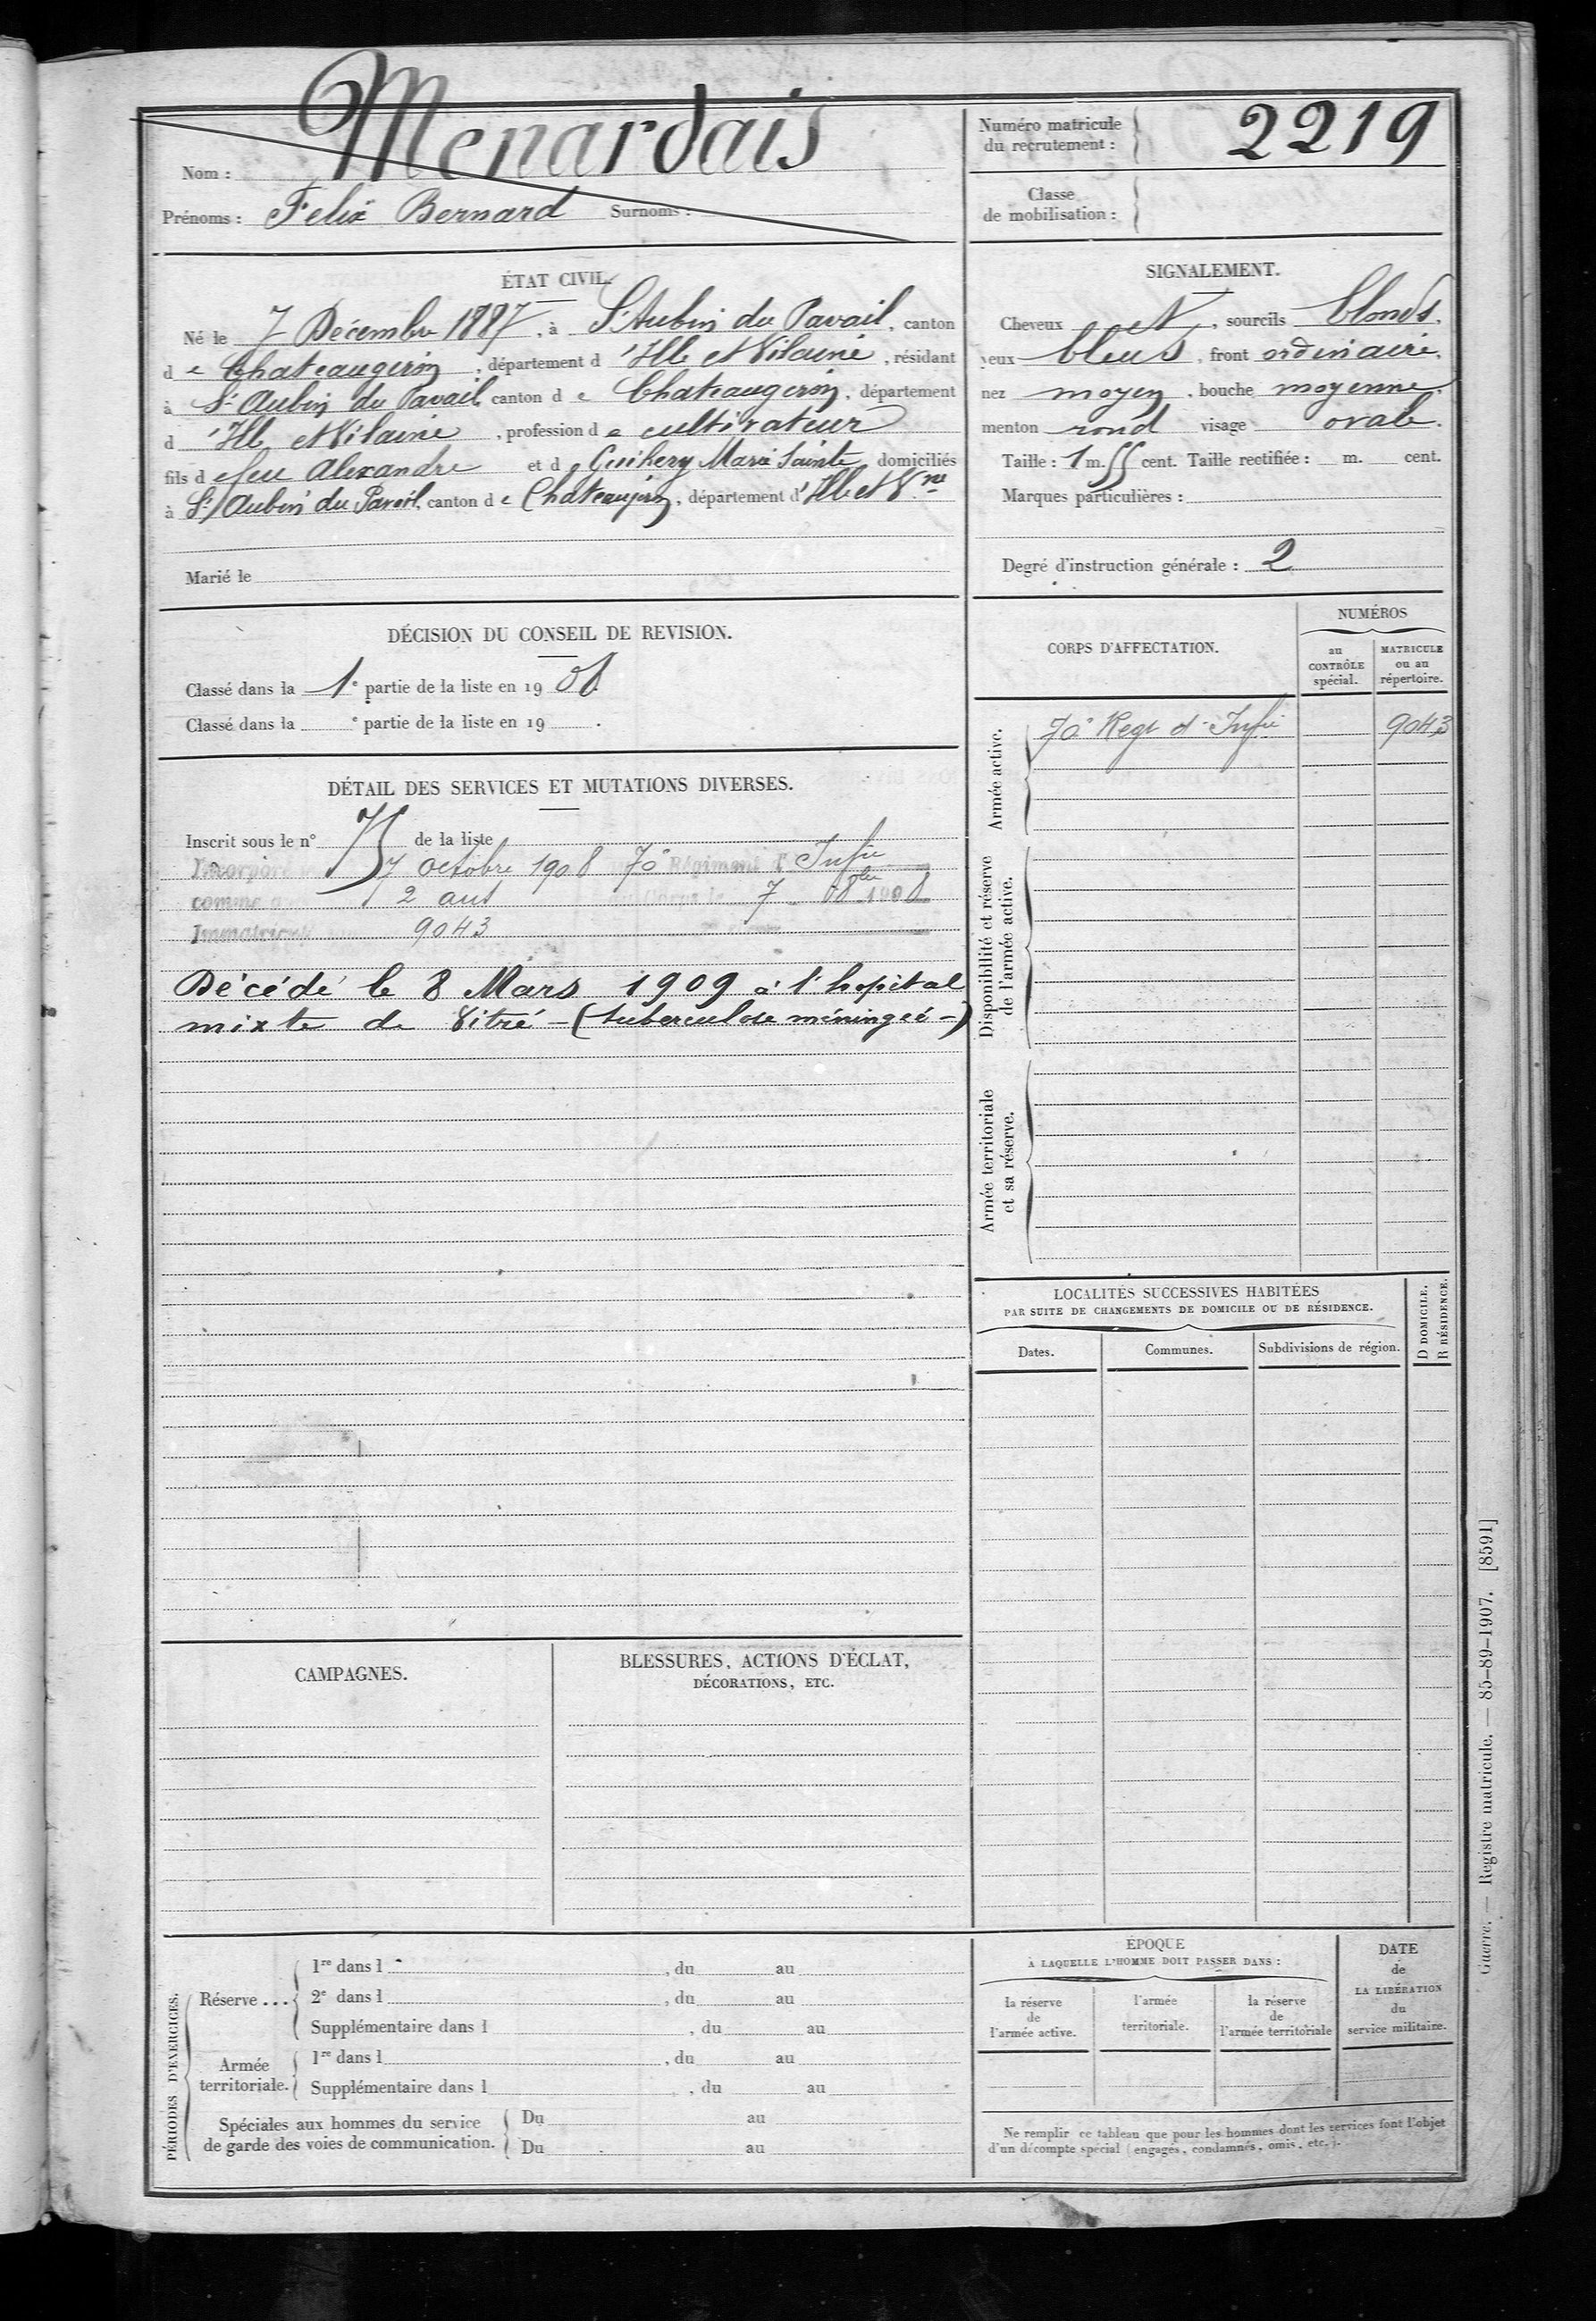 Nom : Menardais
Prénoms : Felix Bernard Surnoms :
Numéro matricule du recrutement : 2219
Classe de mobilisation :
ÉTAT CIVIL.
Né le 7 Décembre 1887, à St Aubin du Pavail, canton
de Chateaugiron, département d'Ille et Vilaine, résidant
à St Aubin du Pavail, canton de Chateaugiron, département
d'Ille et Vilaine, profession de cultivateur
fils de feu Alexandre et de Guihery Marie Sainte domiciliés
à St Aubin du Pavail, canton de Chateaugiron, département d'Ille et Vne
Marié le
SIGNALEMENT.
Cheveux et, sourcils blonds,
yeux bleus, front ordinaire,
nez moyen, bouche moyenne,
menton rond visage ovale.
Taille : 1 m. 55 cent. Taille rectifiée : m. cent.
Marques particulières :
Degré d'instruction générale : 2
DÉCISION DU CONSEIL DE REVISION.
Classé dans la 1e partie de la liste en 1908
Classé dans la e partie de la liste en 19 .
DÉTAIL DES SERVICES ET MUTATIONS DIVERSES.
Inscrit sous le n° 75 de la liste
7 Octobre 1908 70e Régiment d'Infie
2 ans 7 8bre 1908
9043
Décédé le 8 Mars 1909 à l'hopital
mixte de Vitré - (tuberculose méningée -)
CORPS D'AFFECTATION.
NUMÉROS
au CONTRÔLE spécial.
MATRICULE ou au répertoire.
Armée active.
70e Regt d'Infie 9043
Disponibilité et réserve
de l'armée active.
Armée territoriale
et sa réserve.
LOCALITÉS SUCCESSIVES HABITÉES
PAR SUITE DE CHANGEMENTS DE DOMICILE OU DE RÉSIDENCE.
Dates. Communes. Subdivisions de région.
D DOMICILE.
R RÉSIDENCE.
CAMPAGNES.
BLESSURES, ACTIONS D'ÉCLAT,
DÉCORATIONS, ETC.
PÉRIODES D'EXERCICES.
Réserve ...
1re dans l , du au
2e dans l , du au
Supplémentaire dans l , du au
Armée territoriale.
1re dans l , du au
Supplémentaire dans l , du au
Spéciales aux hommes du service
de garde des voies de communication.
Du au
Du au
ÉPOQUE
À LAQUELLE L'HOMME DOIT PASSER DANS :
la réserve de l'armée active.
l'armée territoriale.
la réserve de l'armée territoriale
DATE de LA LIBÉRATION du service militaire.
Ne remplir ce tableau que pour les hommes dont les services font l'objet
d'un décompte spécial (engagés, condamnés, omis, etc.).
Guerre. — Registre matricule. — 85-89-1907. [8591]